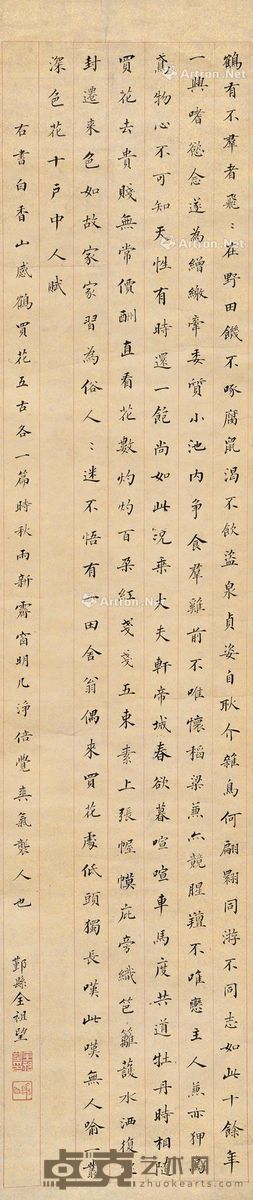 鶴有不羣者飛〻在野田饑不啄腐鼠渴不飲盜泉貞姿自耿介雜鳥何翩翾同游不同志如此十餘年
一興嗜慾念遂為繒繳牽委質小池內爭食羣雞前不唯懷稻粱兼亦競腥羶不唯戀主人兼亦狎烏
鳶物心不可知天性有時還一飽尚如此況乘大夫軒帝城春欲暮喧喧車馬度共道牡丹時相隨
買花去貴賤無常價酬直看花數灼灼百朵紅戔戔五束素上張幄幙庇旁織笆籬護水洒復
封遷來色如故家家習為俗人〻迷不悟有一田舍翁偶來買花處低頭獨長嘆此嘆無人喻一叢
深色花十戶中人賦
右書白香山感鶴買花五古各一篇時秋雨新霽窗明几淨倍覺爽氣襲人也
鄞縣全祖望
Artron.Net
貞元艺术网
zhuokearts.com